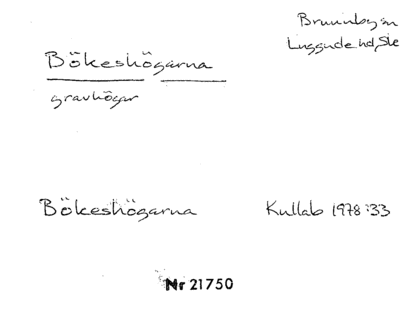 Brunnby sn
Luggude hd, Ske
Bökeshögarna
gravhögar
Bökeshögarna Kullab 1978:33
Nr 21750